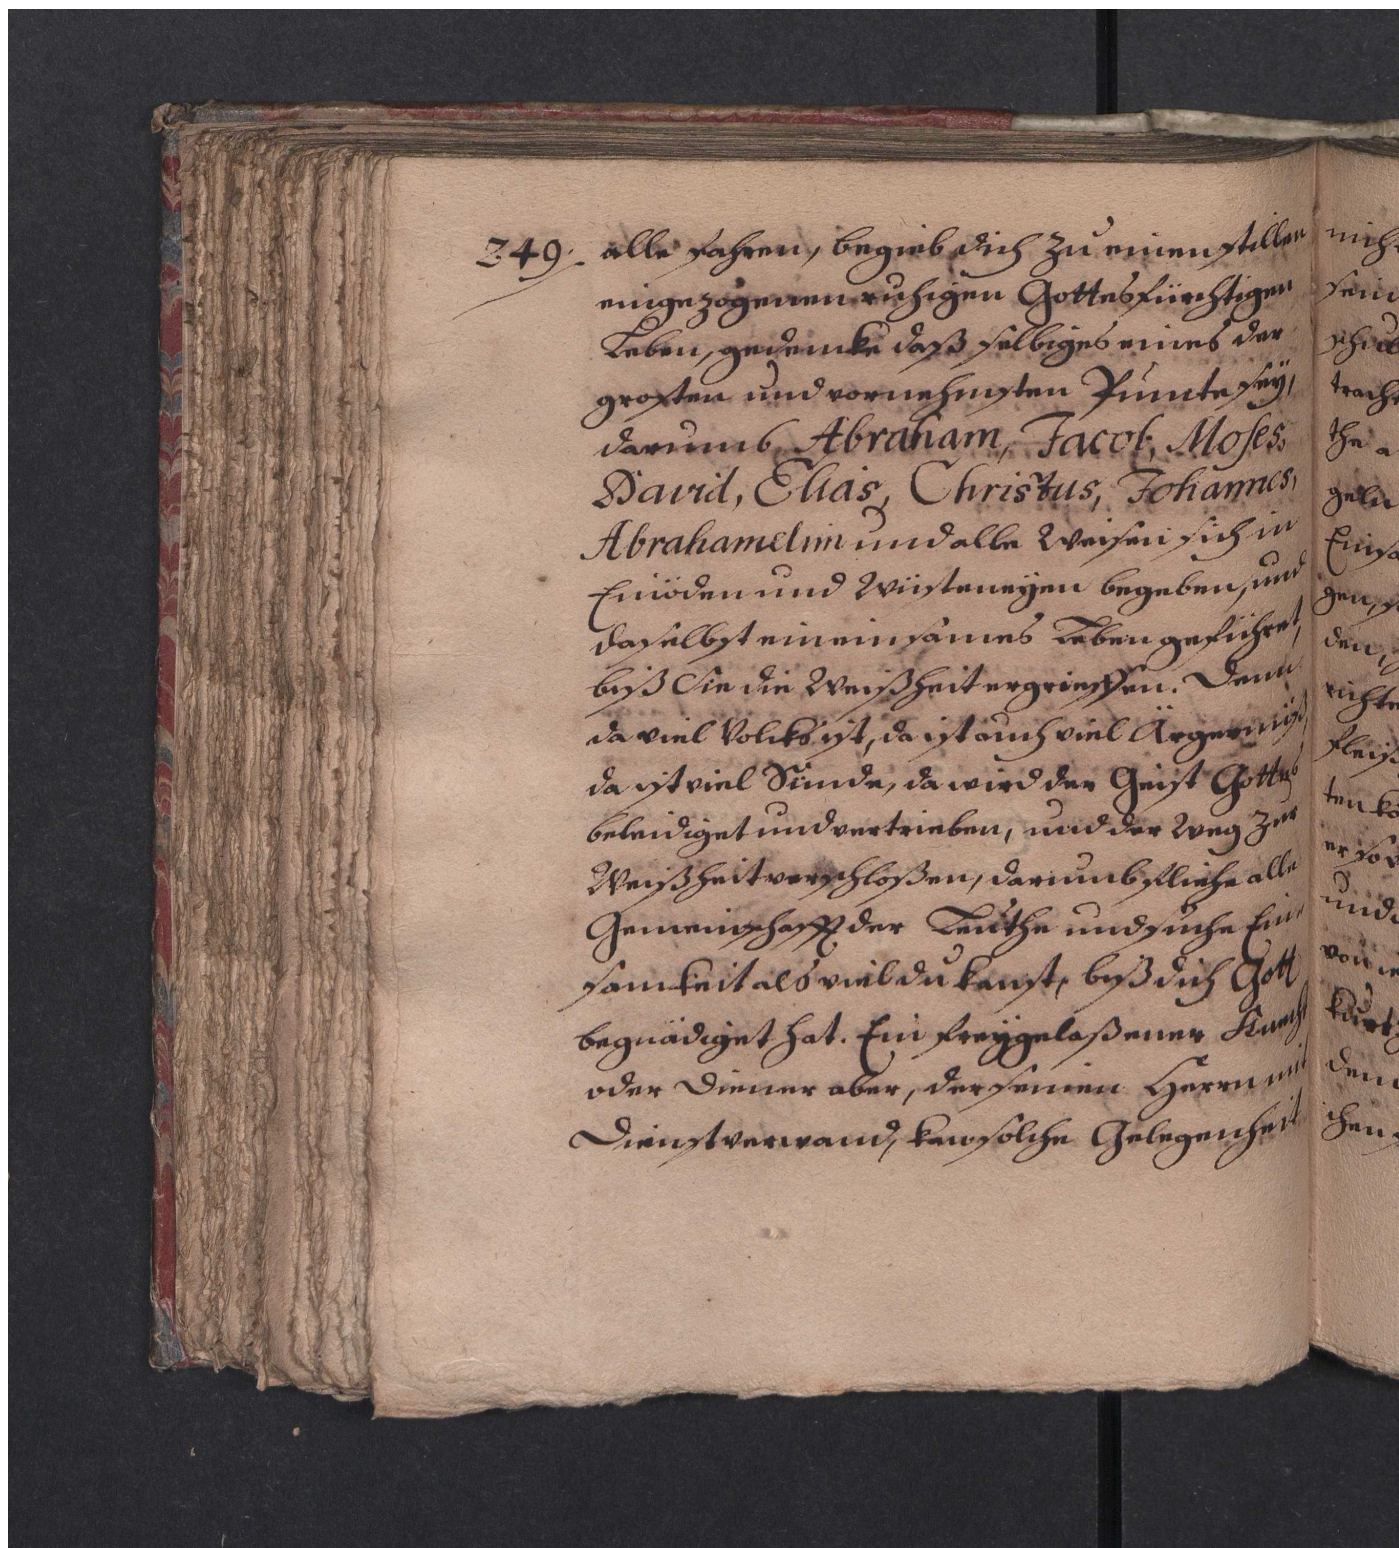 249. alle fahren, begieb dich zu einen stillen
eingezogenen ruhigen Gottesfürchtigen
Leben, gedencke daß selbiges eines der
grosten und vornehmsten Puncte sey,
darumb Abraham, Jacob, Moses,
David, Elias, Christus, Johannes,
Abrahamelim und alle Weisen sich in
Einöden und Wüsteneyen begeben, und
daselbst ein einsames Leben geführet,
biß Sie die Weißheit ergrieffen. Denn
da viel Volcks ist, da ist auch viel Ärgernüß,
da ist viel Sünde, da wird der Geist Gottes
beleidiget und vertrieben, und der Weg zur
Weißheit verschloßen, darumb fliehe alle
Gemeinschafft der Leuthe und suche Ein-
samkeit als viel du kanst, biß dich Gott
begnädiget hat. Ein freygelaßener Knecht
oder Diener aber, der seinen Herrn mit
Dienst verwand, kan solche Gelegenheit
nicht
sein
tracht
the a
den,
richte
ten
und
von
kurtz
den
chen